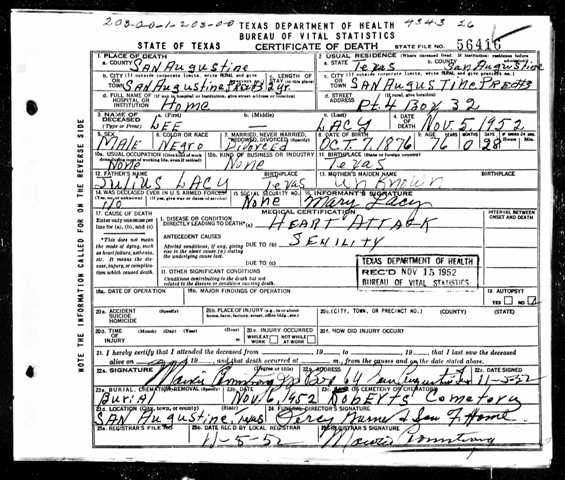 203-20-1-203-00 TEXAS DEPARTMENT OF HEALTH 4343 26
BUREAU OF VITAL STATISTICS
STATE OF TEXAS CERTIFICATE OF DEATH STATE FILE NO. 56416
1. PLACE OF DEATH
a. COUNTY San Augustine
2. USUAL RESIDENCE (Where deceased lived. If institution: residence before admission)
a. STATE Texas b. COUNTY San Augustine
b. CITY (If outside corporate limits, write RURAL and give
OR TOWN San Augustine
c. LENGTH OF STAY 2 yr.
c. CITY (If outside corporate limits, write RURAL and give precinct no.)
OR TOWN San Augustine
d. FULL NAME OF (If not in hospital or institution, give street address or location)
HOSPITAL OR INSTITUTION Home
d. STREET ADDRESS (If rural, give location)
Rt. 4 Box 32
3. NAME OF DECEASED (Type or Print)
a. (First) Lee b. (Middle) c. (Last) Lacy
4. DATE OF DEATH Nov. 5, 1952
5. SEX Male
6. COLOR OR RACE Negro
7. MARRIED, NEVER MARRIED, WIDOWED, DIVORCED (Specify) Divorced
8. DATE OF BIRTH Oct. 7, 1876
9. AGE YEARS 76 MONTHS 0 DAYS 28
10a. USUAL OCCUPATION None
10b. KIND OF BUSINESS OR INDUSTRY None
11. BIRTHPLACE (State or foreign country) Texas
12. FATHER'S NAME Julius Lacy BIRTHPLACE Texas
13. MOTHER'S MAIDEN NAME Unknown BIRTHPLACE
14. WAS DECEASED EVER IN U.S. ARMED FORCES? No
15. SOCIAL SECURITY NO. None
16. INFORMANT'S SIGNATURE Mary Lacy
MEDICAL CERTIFICATION
INTERVAL BETWEEN ONSET AND DEATH
17. CAUSE OF DEATH
Enter only one cause per line for (a), (b), and (c)
*This does not mean the mode of dying, such as heart failure, asthenia, etc. It means the disease, injury, or complication which caused death.
I. DISEASE OR CONDITION DIRECTLY LEADING TO DEATH* (a) Heart Attack
ANTECEDENT CAUSES
Morbid conditions, if any, giving rise to the above cause (a) stating the underlying cause last.
DUE TO (b) Senility
DUE TO (c)
TEXAS DEPARTMENT OF HEALTH
REC'D NOV 15 1952
BUREAU OF VITAL STATISTICS
II. OTHER SIGNIFICANT CONDITIONS
Conditions contributing to the death but not related to the disease or condition causing death.
18a. DATE OF OPERATION
18b. MAJOR FINDINGS OF OPERATION
19. AUTOPSY YES NO
20a. ACCIDENT SUICIDE HOMICIDE (Specify)
20b. PLACE OF INJURY (e.g., in or about home, farm, factory, street, office bldg., etc.)
20c. (CITY, TOWN, OR PRECINCT NO.) (COUNTY) (STATE)
20d. TIME OF INJURY (Month) (Day) (Year) (Hour)
20e. INJURY OCCURRED WHILE AT WORK NOT WHILE AT WORK
20f. HOW DID INJURY OCCUR?
21. I hereby certify that I attended the deceased from 19 , to 19 , that I last saw the deceased
alive on 19 , and that death occurred at m., from the causes and on the date stated above.
22a. SIGNATURE (Degree or title)
22b. ADDRESS San Augustine
22c. DATE SIGNED 11-5-52
23a. BURIAL, CREMATION, REMOVAL (Specify) Burial
23b. DATE Nov 6, 1952
23c. NAME OF CEMETERY OR CREMATORY Roberts Cemetery
23d. LOCATION (City, town, or county) (State)
San Augustine, Texas
24. FUNERAL DIRECTOR'S SIGNATURE
25a. REGISTRAR'S FILE NO.
25b. DATE REC'D BY LOCAL REGISTRAR 11-5-52
25c. REGISTRAR'S SIGNATURE
NOTE THE INFORMATION CALLED FOR ON THE REVERSE SIDE